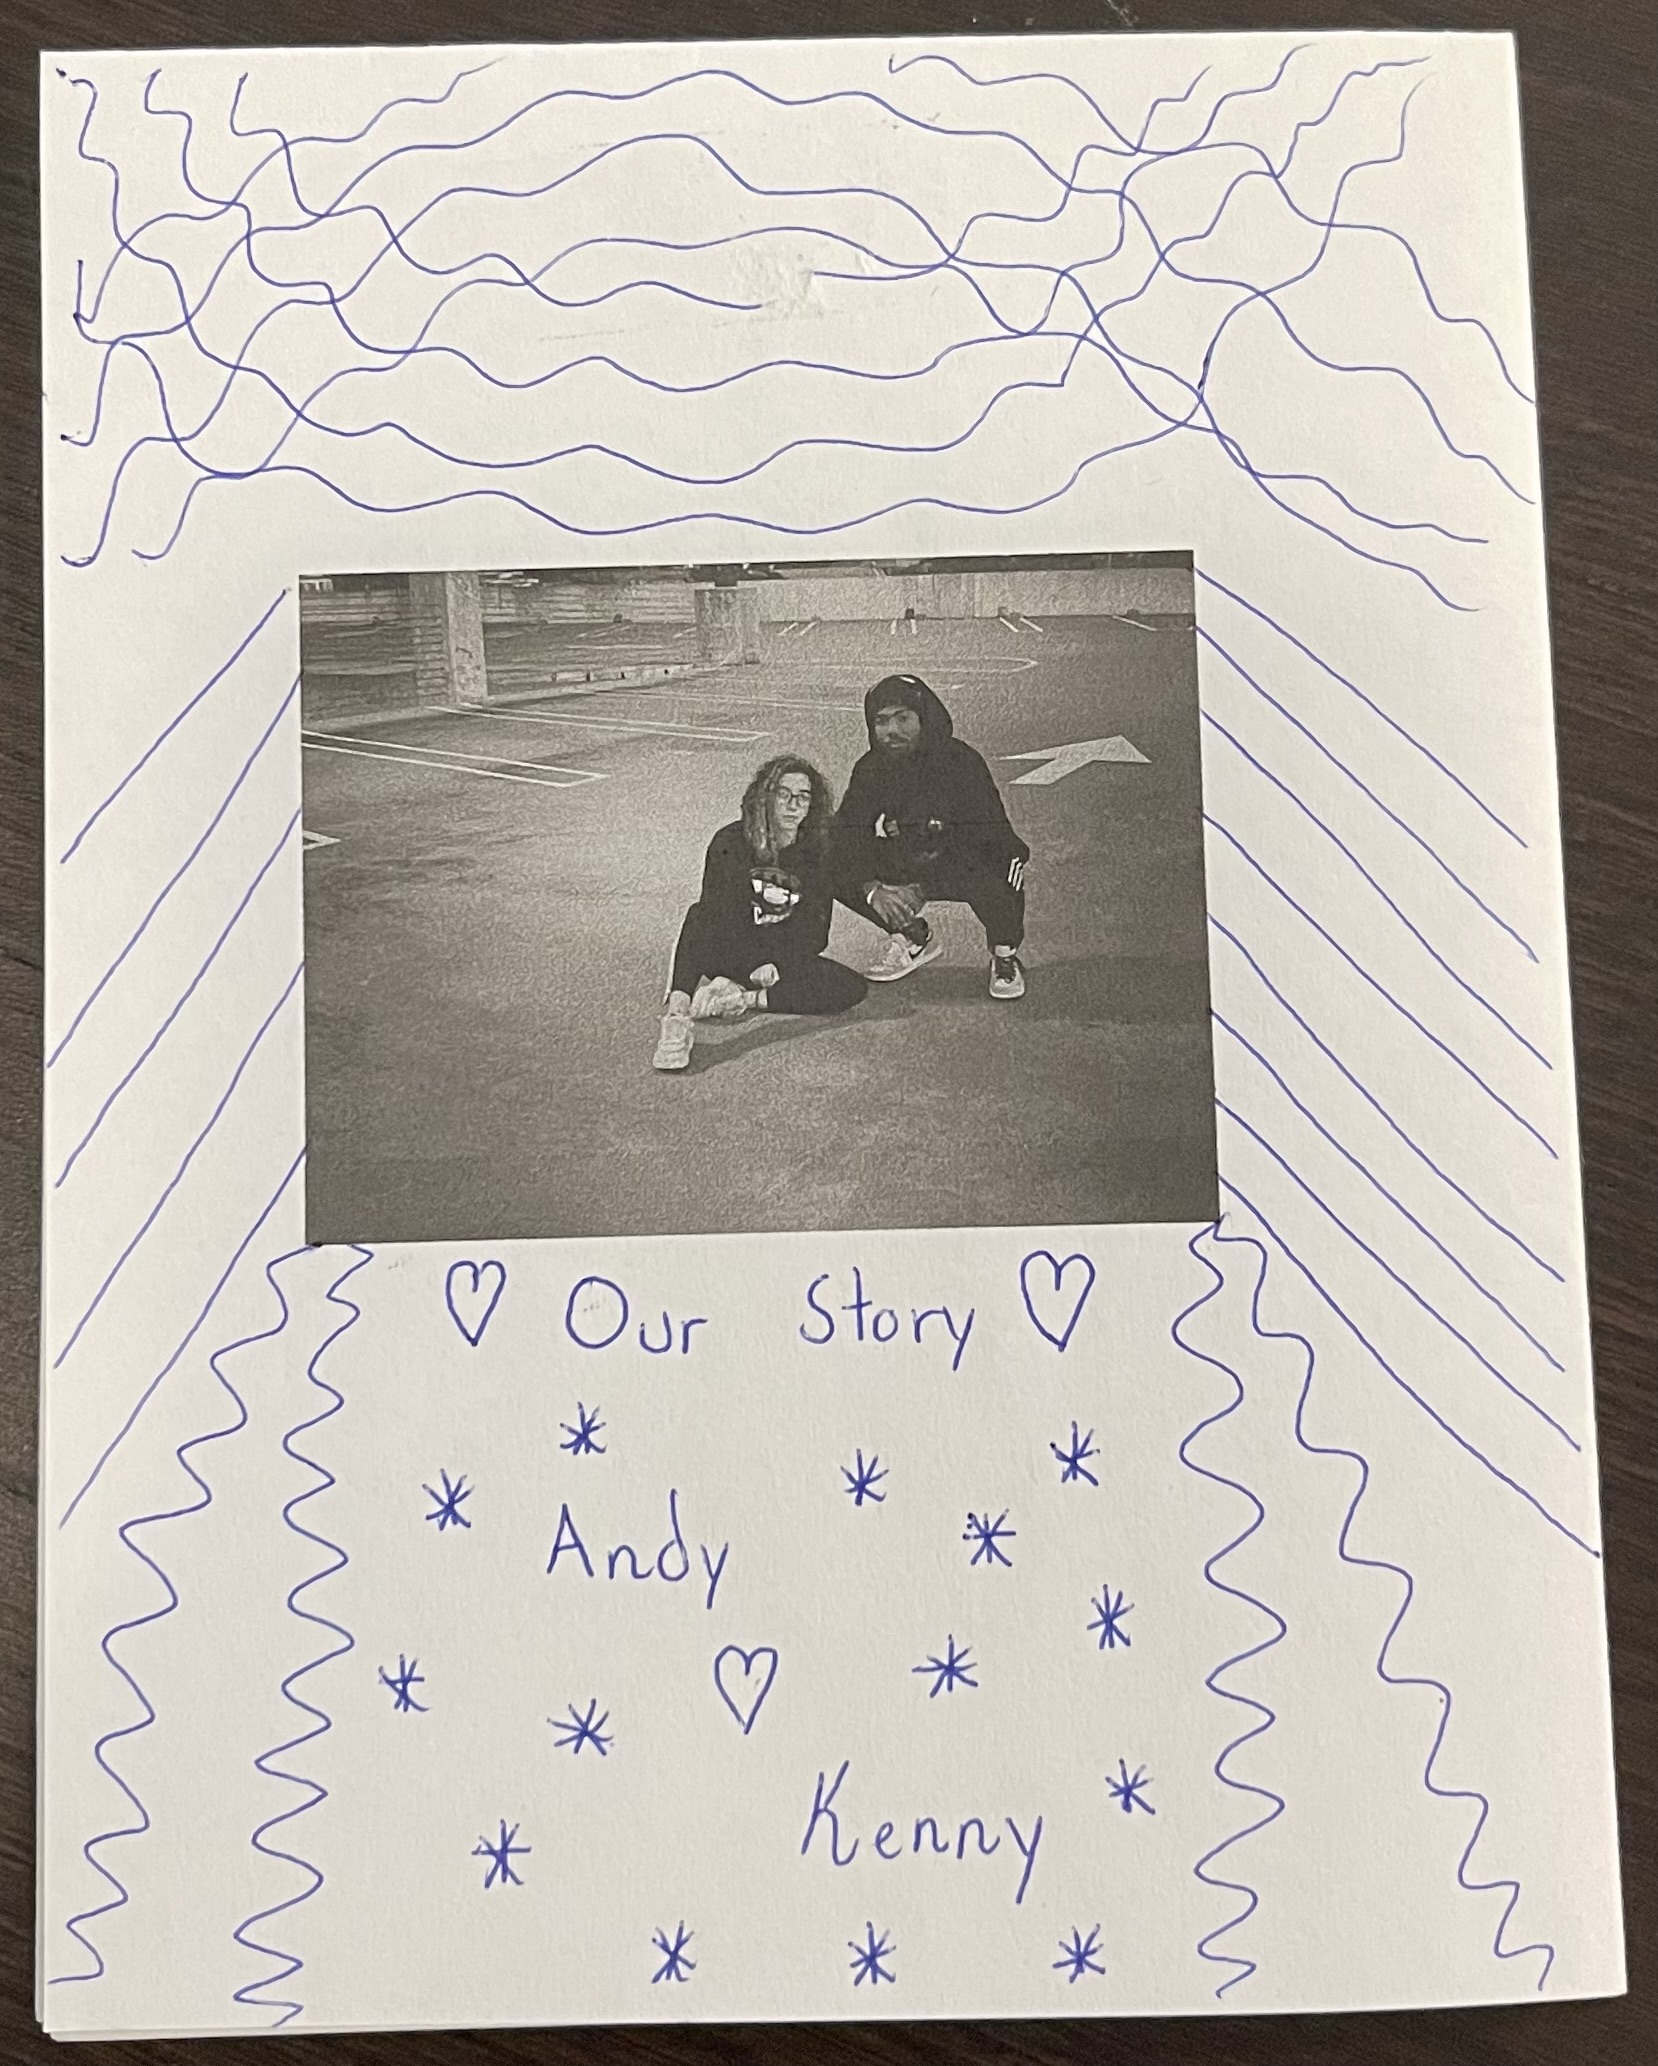 ♡ Our Story ♡
Andy
♡
Kenny